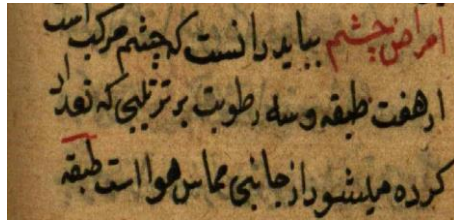 امراض چشم بباید دانست که چشم مرکب است
از هفت طبقه و سه رطوبت بر ترتیبی که تعداد
کرده میشود از جانبی مماس هوا است طبقه